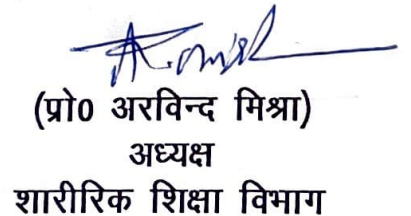 (प्रो0 अरविन्द मिश्रा)
अध्यक्ष
शारीरिक शिक्षा विभाग